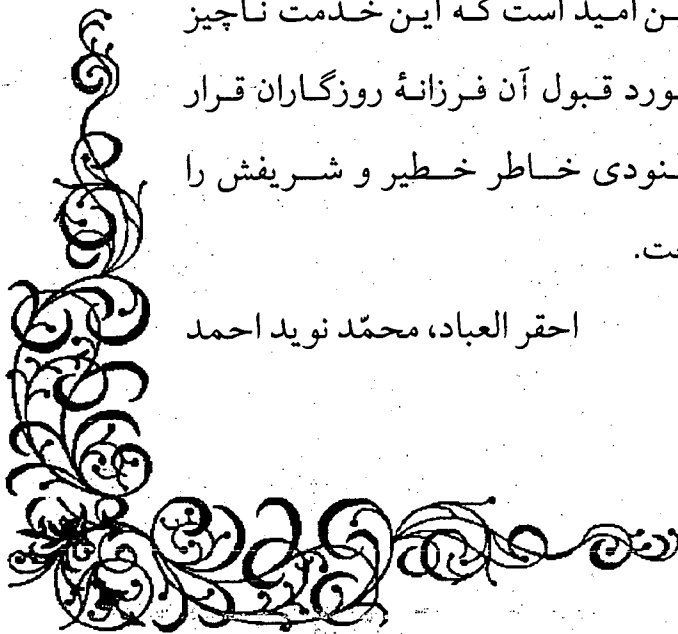 امید است که این خدمت ناچیز
قبول آن فرزانهٔ روزگاران قرار
خاطر خطیر و شریفش را
احقر العباد، محمّد نوید احمد